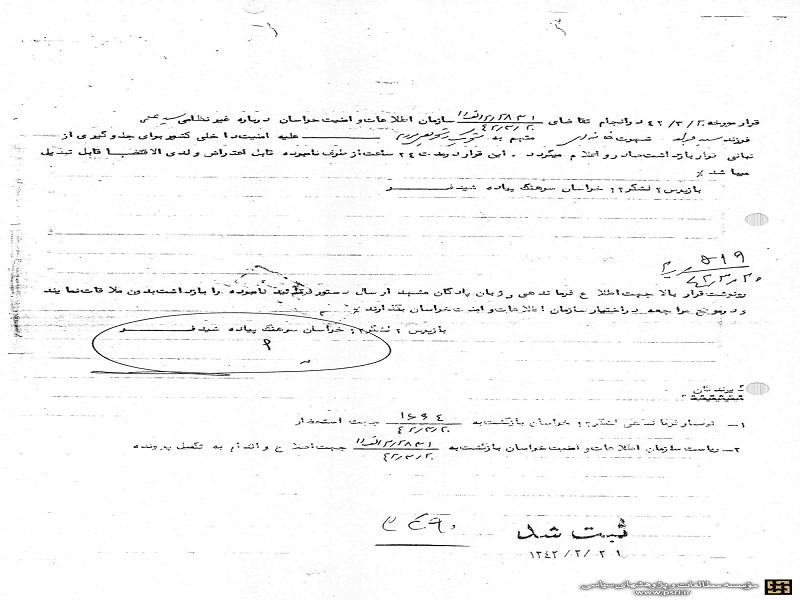 قرار مورخه ۴۲/۳/۲۰ در انجام تقاضای ۴۲/۳/۲۰ سازمان اطلاعات و امنیت خراسان درباره غیر نظامی سید علی
فرزند سید شهرت خامنه ای متهم به علیه امنیت داخلی کشور برای جلوگیری از
تبانی قرار بازداشت صادر و اعلام میگردد . این قرار در مدت ۲۴ ساعت از طرف نامبرده قابل اعتراض و لدی الاقتضا قابل تبدیل
میباشد ٪
بازپرس ۲ لشگر ۱۲ خراسان سرهنگ پیاده
۵۱۹
۴۲/۳/۲۰
رونوشت قرار بالا جهت اطلاع فرماندهی دژبان پادگان مشهد ارسال دستور فرمائید نامبرده را بازداشت بدون ملاقات نمایند
و در موقع مراجعه در اختیار سازمان اطلاعات و امنیت خراسان بگذارند ٪
بازپرس ۲ لشگر ۱۲ خراسان سرهنگ پیاده
گیرندگان
۱- تیمسار فرماندهی لشگر ۱۲ خراسان بازگشت به ۱۶۶۴ ۴۲/۳/۲۰ جهت استحضار
۲- ریاست سازمان اطلاعات و امنیت خراسان بازگشت به ۴۲/۳/۲۰ جهت اطلاع و اقدام به تکمیل پرونده
ثبت شد
۱۳۴۲/۳/۲۱
مؤسسه مطالعات و پژوهشهای سیاسی
www.psri.ir